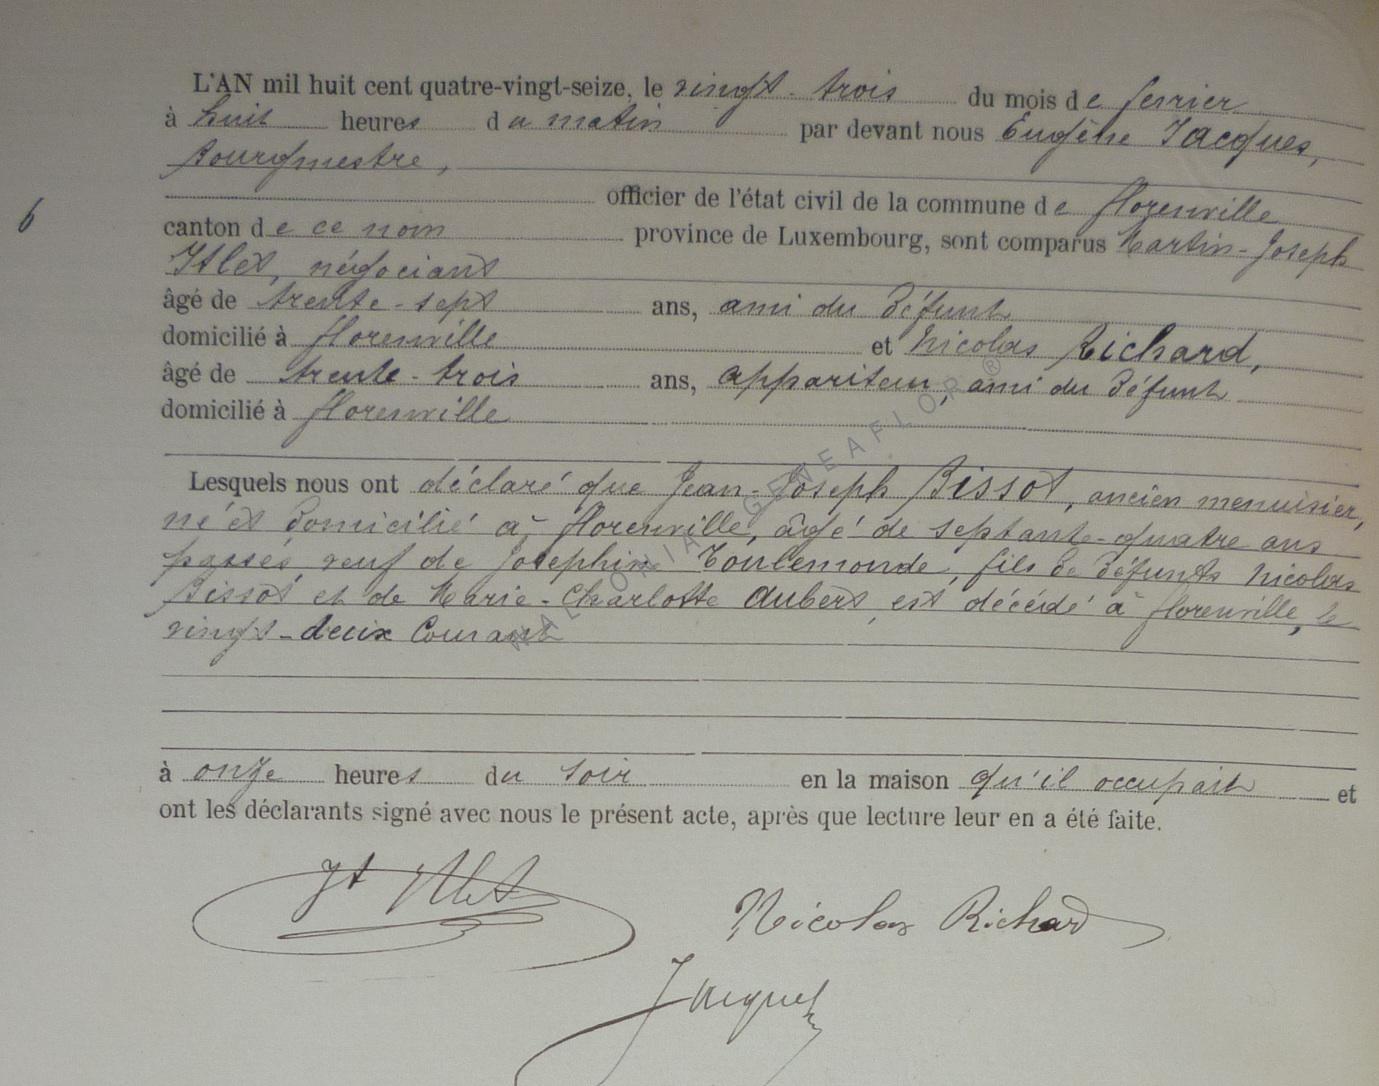 L'AN mil huit cent quatre-vingt-seize, le vingt-trois du mois de fevrier
à huit heures du matin par devant nous Eugène Jacques,
Bourgmestre,
officier de l'état civil de la commune de florenville
6
canton de ce nom province de Luxembourg, sont comparus Martin-Joseph
Itlet, négociant
âgé de trente-sept ans, ami du défunt
domicilié à florenville et Nicolas Richard,
âgé de trente-trois ans, appariteur, ami du défunt
domicilié à florenville
Lesquels nous ont déclaré que Jean-Joseph Bissot, ancien menuisier,
né et domicilié à florenville, âgé de septante-quatre ans
passés, veuf de Joséphine Toulemonde, fils de défunts Nicolas
Bissot et de Marie-Charlotte Aubert, est décédé à florenville, le
vingt-deux Courant
WALLONIA GENEAFLOR ®
à onze heures du soir en la maison qu'il occupait et
ont les déclarants signé avec nous le présent acte, après que lecture leur en a été faite.
Nicolas Richard
Jacques